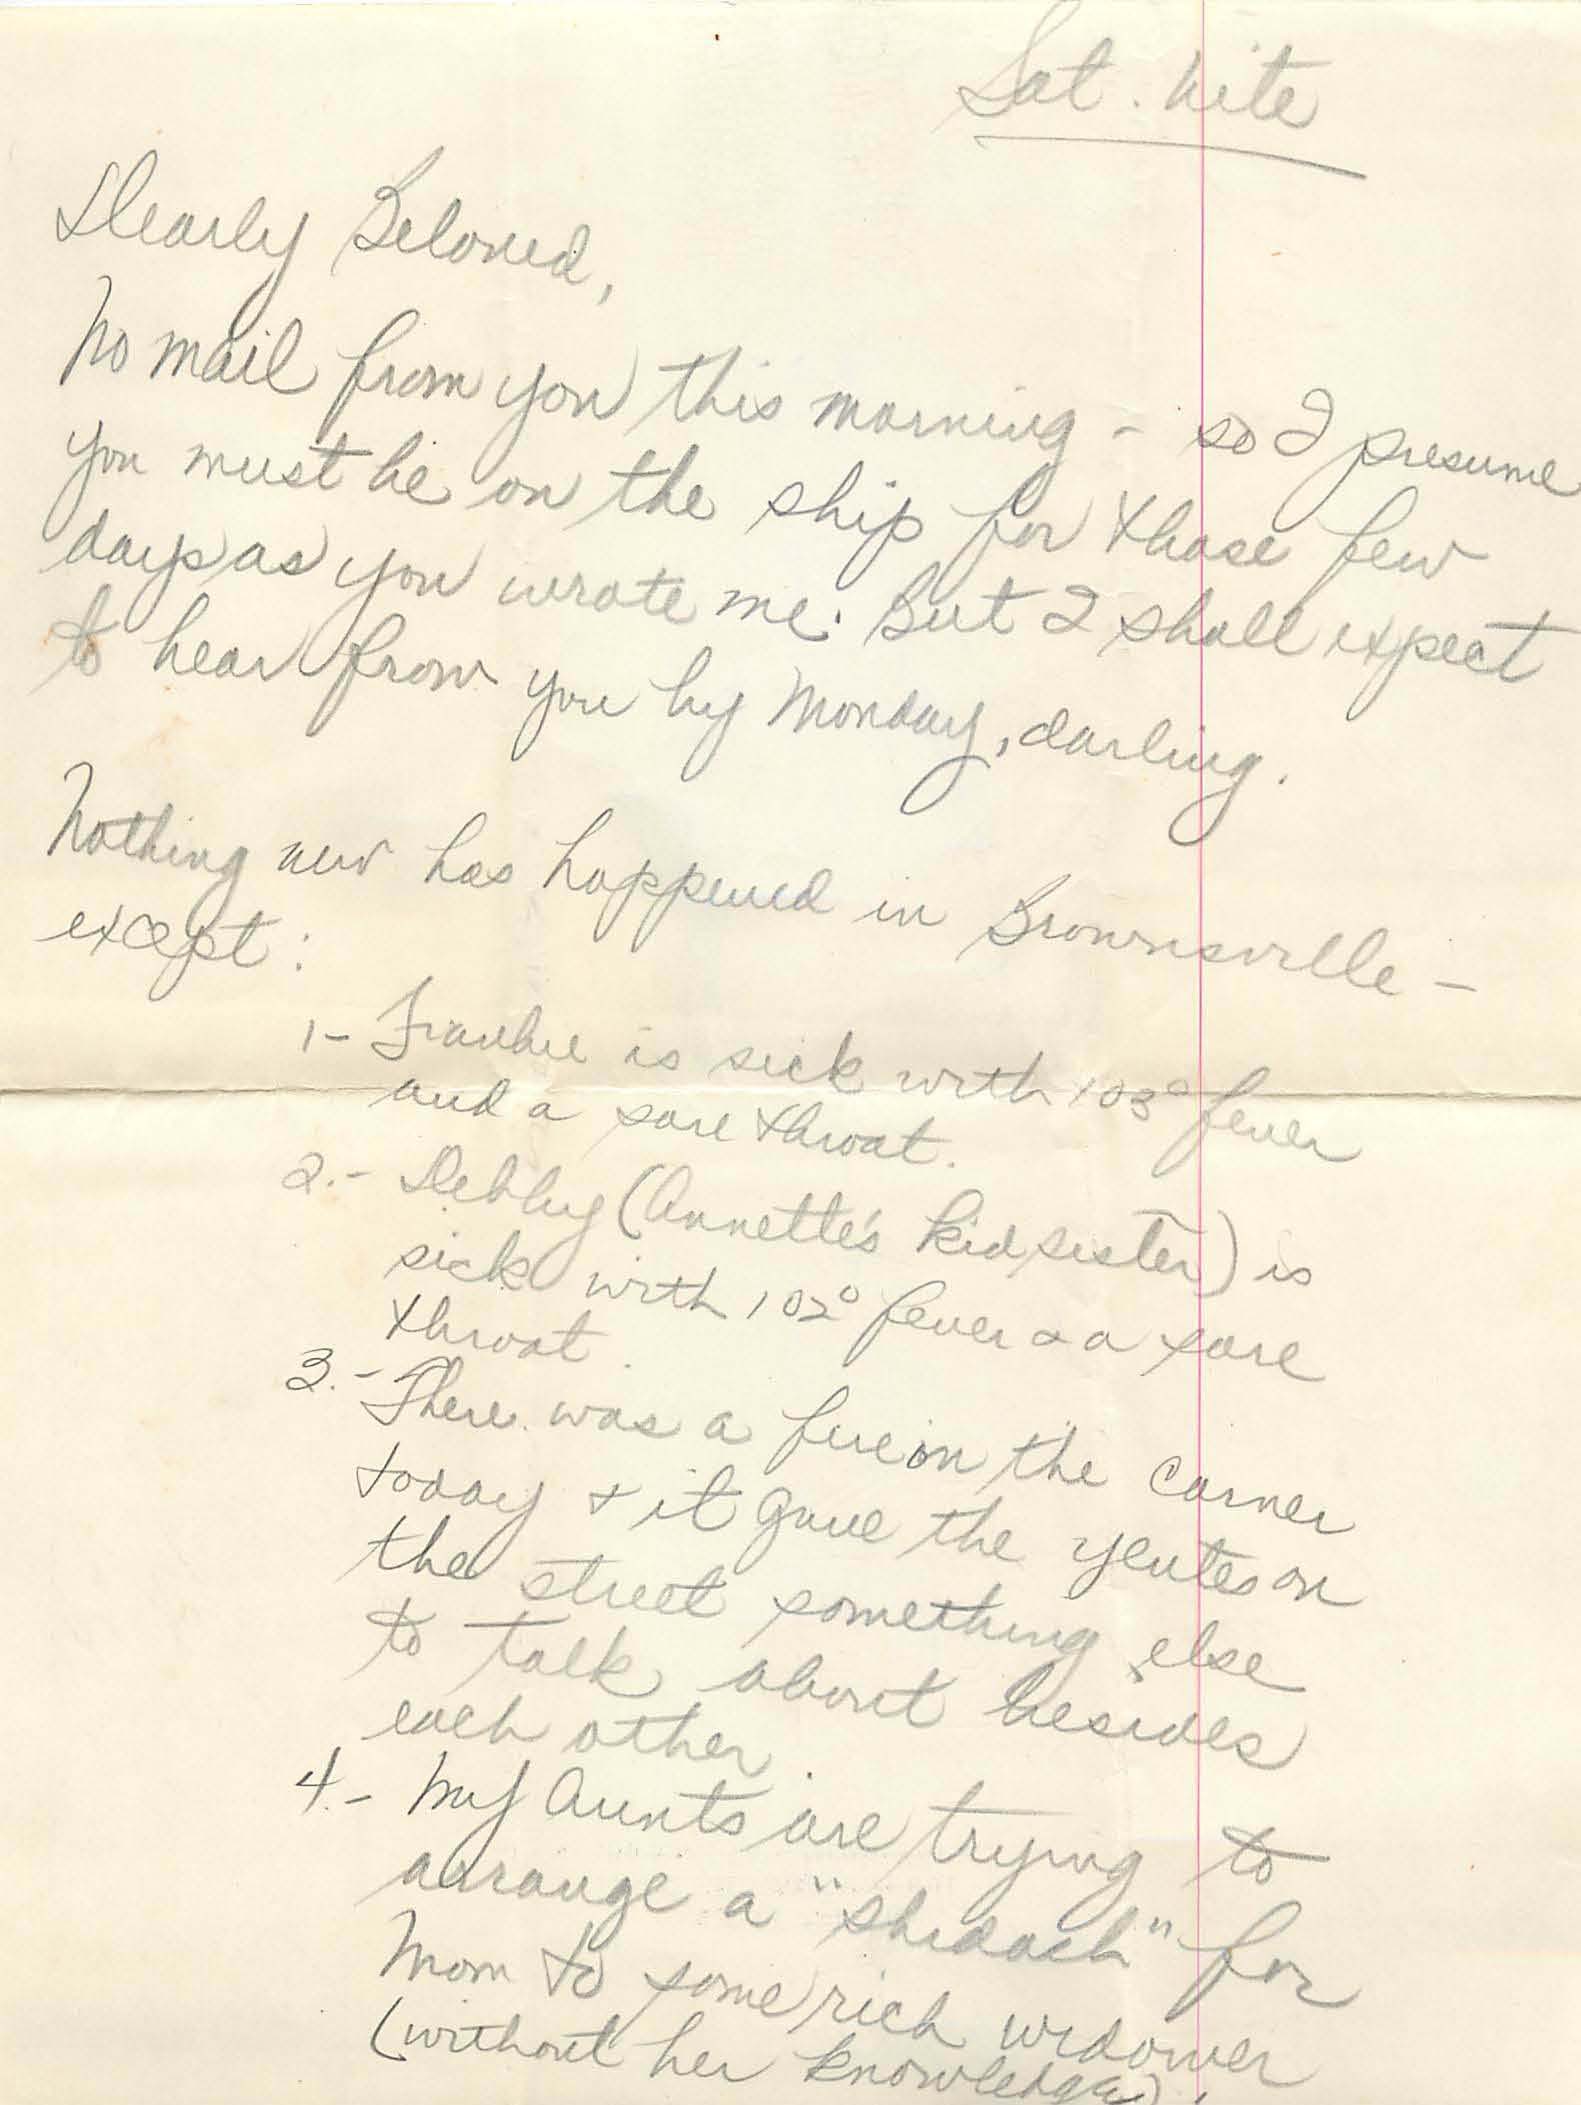 Sat. Nite
Dearly Beloved,
No mail from you this morning - so I presume
you must be on the ship for those few
days as you wrote me. But I shall expect
to hear from you by Monday, darling.
Nothing new has happened in Brownsville -
except:
1- Frankie is sick with 103° fever
and a sore throat.
2.- Debby (Annette's kid sister) is
sick with 102° fever & a sore
throat.
3.- There was a fire on the corner
today & it gave the yentes on
the street something else
to talk about besides
each other.
4.- My Aunts are trying to
arrange a "shidach" for
Mom to some rich widower
(without her knowledge).